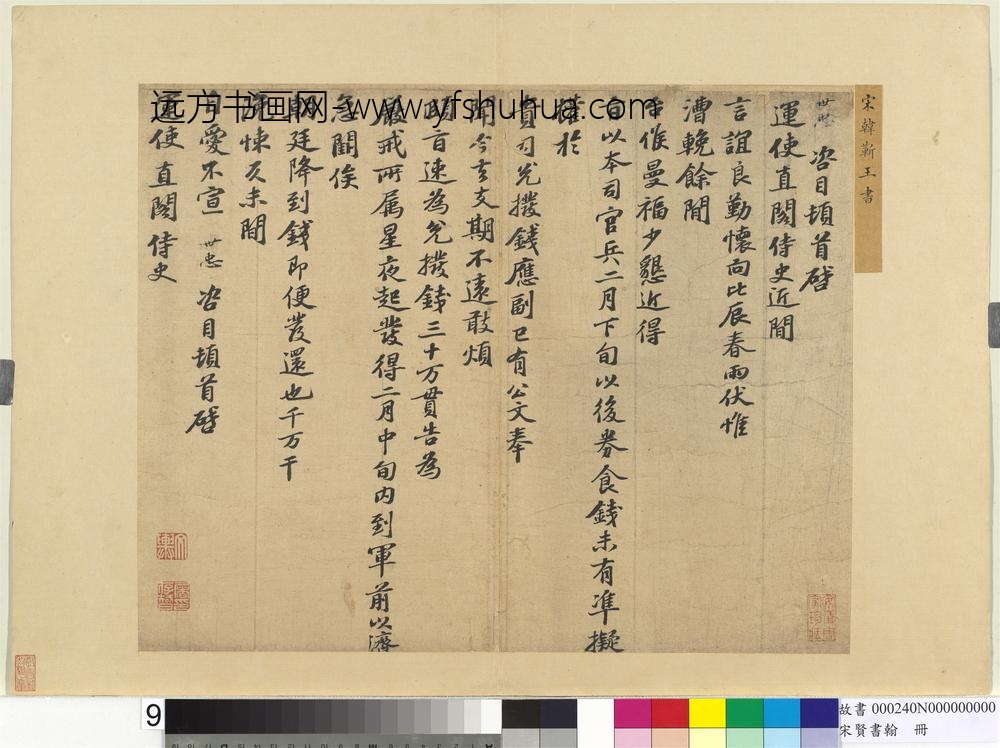 宋韓蘄王書
世忠 咨目頓首啓
運使直閣侍史近聞
言誼良勤懷向比辰春雨伏惟
漕輓餘閒
候曼福少懇近得
以本司官兵二月下旬以後券食錢未有準擬
於
貴司兌撥錢應副已有公文奉
聞今去支期不遠敢煩
旨速為兌撥錢三十万貫告為
嚴戒所属星夜起發得二月中旬内到軍前以濟
急闕俟
朝廷降到錢即便發還也千万千
悚久未間
愛不宣 世忠 咨目頓首啓
運使直閣侍史
远方书画网-www.yfshuhua.com
9
故書 000240N000000000
宋賢書翰 冊